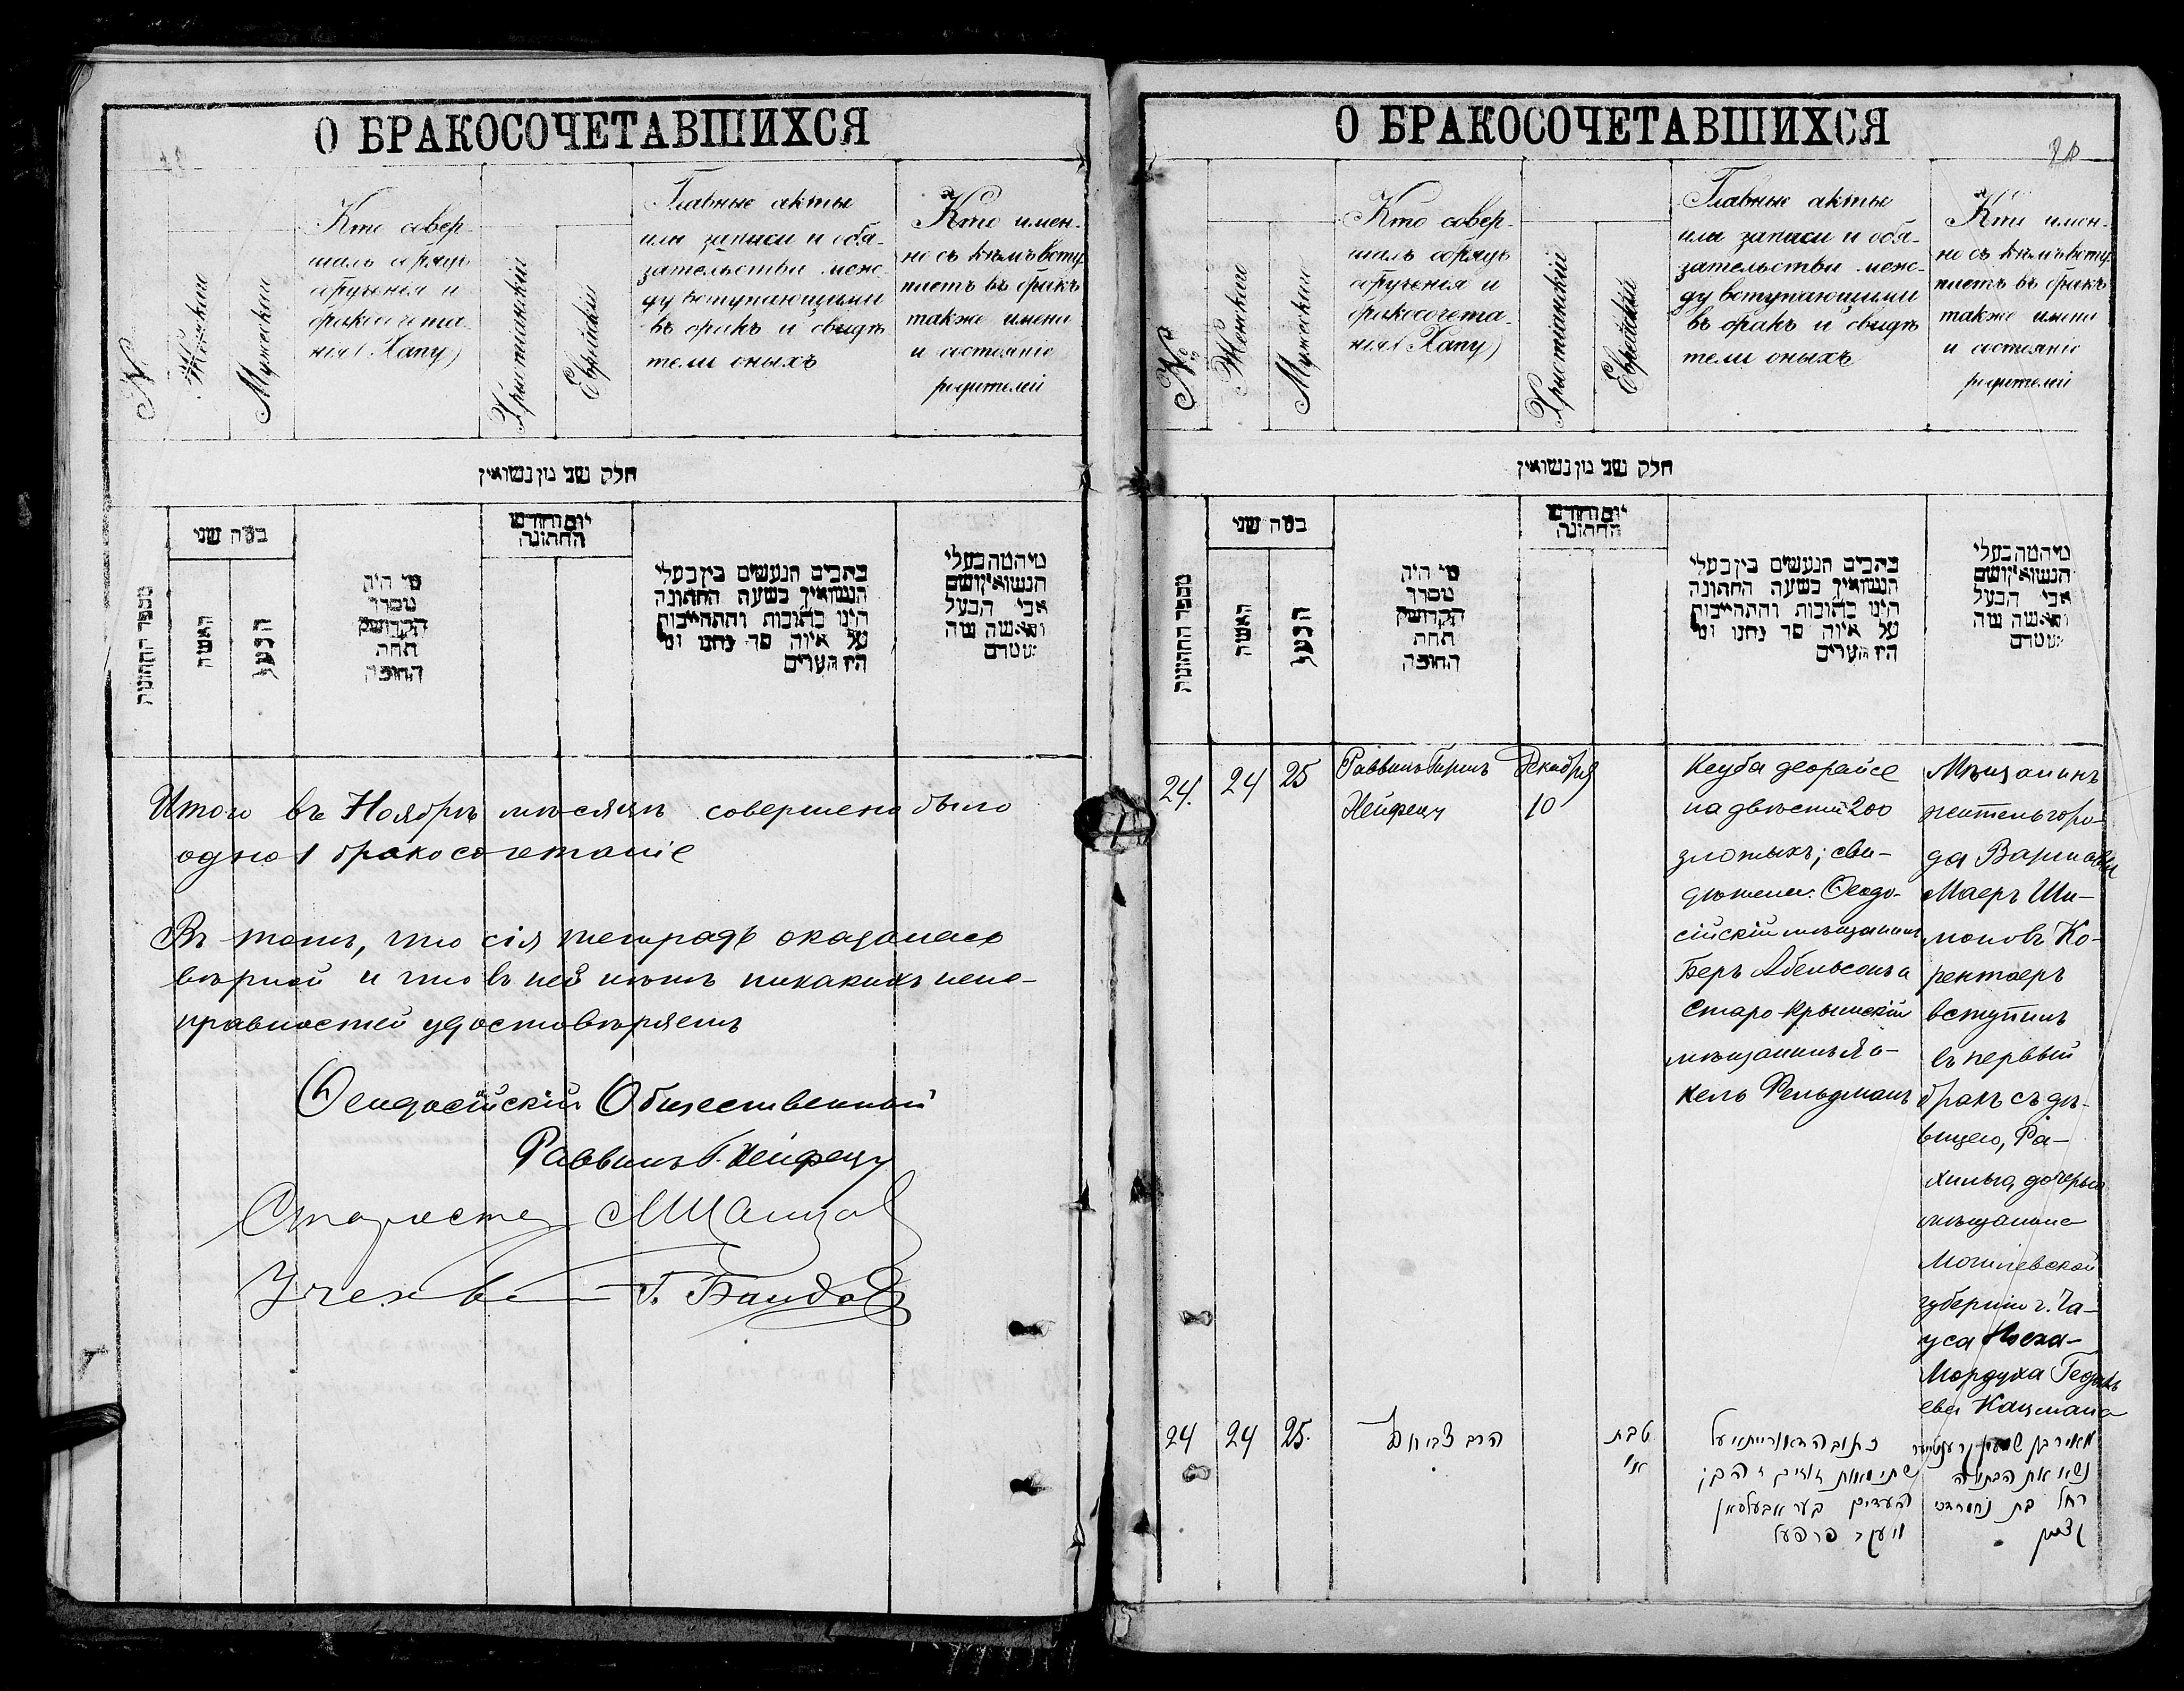 О БРАКОСОЧЕТАВШИХСЯ
№
Женскаго
Мужескаго
Кто совер-
шалъ обрядъ
обрученія и
бракосочета-
нія (Хапу)
Христіанскій
Еврейскій
Главные акты
или записи и обя-
зательствы меж-
ду вступающими
въ бракъ и свидѣ
тели оныхъ
Кто имен-
но съ кѣмъ всту
паетъ въ бракъ
также имена
и состояніе
родителей
חלק שני מן נשואין
מספר החתונות
במה שני
האשה
הבעל
מי היה
מסדר
הקדושין
תחת
החופה
יום וחודש
החתונה
כתבים הנעשים בין בעלי
הנשואין בשעה החתונה
היינו כתובות והתחייבות
על איזה סך נתנו ומי
היו העדים
מי המה בעלי
הנשואין ושם
אבי הבעל
והאשה ומה
Итого въ Ноябрѣ мѣсяцѣ совершено было
одно 1 бракосочетаніе
Въ томъ, что сія тетрадь оказалась
вѣрной и что въ ней нѣтъ никакихъ неис-
правностей удостовѣряемъ
Ѳеодосійскій Общественный
Раввинъ Г. Хейфецъ
Староста
Г. Бандовъ
О БРАКОСОЧЕТАВШИХСЯ
№
Женскаго
Мужескаго
Кто совер-
шалъ обрядъ
обрученія и
бракосочета-
нія (Хапу)
Христіанскій
Еврейскій
Главные акты
или записи и обя-
зательствы меж-
ду вступающими
въ бракъ и свидѣ
тели оныхъ
Кто имен-
но съ кѣмъ всту
паетъ въ бракъ
также имена
и состояніе
родителей
חלק שני מן נשואין
מספר החתונות
במה שני
האשה
הבעל
מי היה
מסדר
הקדושין
תחת
החופה
יום וחודש
החתונה
כתבים הנעשים בין בעלי
הנשואין בשעה החתונה
היינו כתובות והתחייבות
על איזה סך נתנו ומי
היו העדים
מי המה בעלי
הנשואין ושם
אבי הבעל
והאשה ומה
24.
24
25
Раввинъ Гиршъ
Хейфецъ
Декабря
10
Ксуба деорайсе
на двѣсти 200
злотыхъ; сви-
дѣтели: Ѳеодо-
сійскій мѣщанинъ
Беръ Абельсонъ и
Старо-Крымскій
мѣщанинъ Я-
кель Фельдманъ
Мѣщанинъ
житель горо-
да Варшавы
Маеръ Ши-
моновъ Ко-
рентаеръ
вступилъ
въ первый
бракъ съ дѣ-
вицею, Ра-
хилью, дочерью
мѣщанина
Могилевской
губерніи г. Ча-
уса
Мордуха
ева Кацмана
24
24
25.
הרב צבי
טבת
כתובה דאורייתא על
שתי מאות זהובים
העדים בער אבעלסאן
מאיר בן שמעון
נשא את הבתולה
רחל בת
קצמן